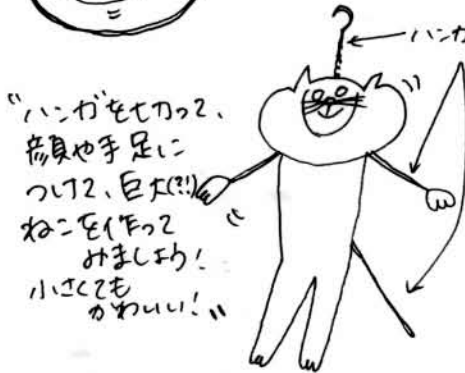 ハンガ
"ハンガを切って、
顔や手足に
つけて、巨大(?!)
ねこを作って
みましょう!
小さくても
かわいい!"